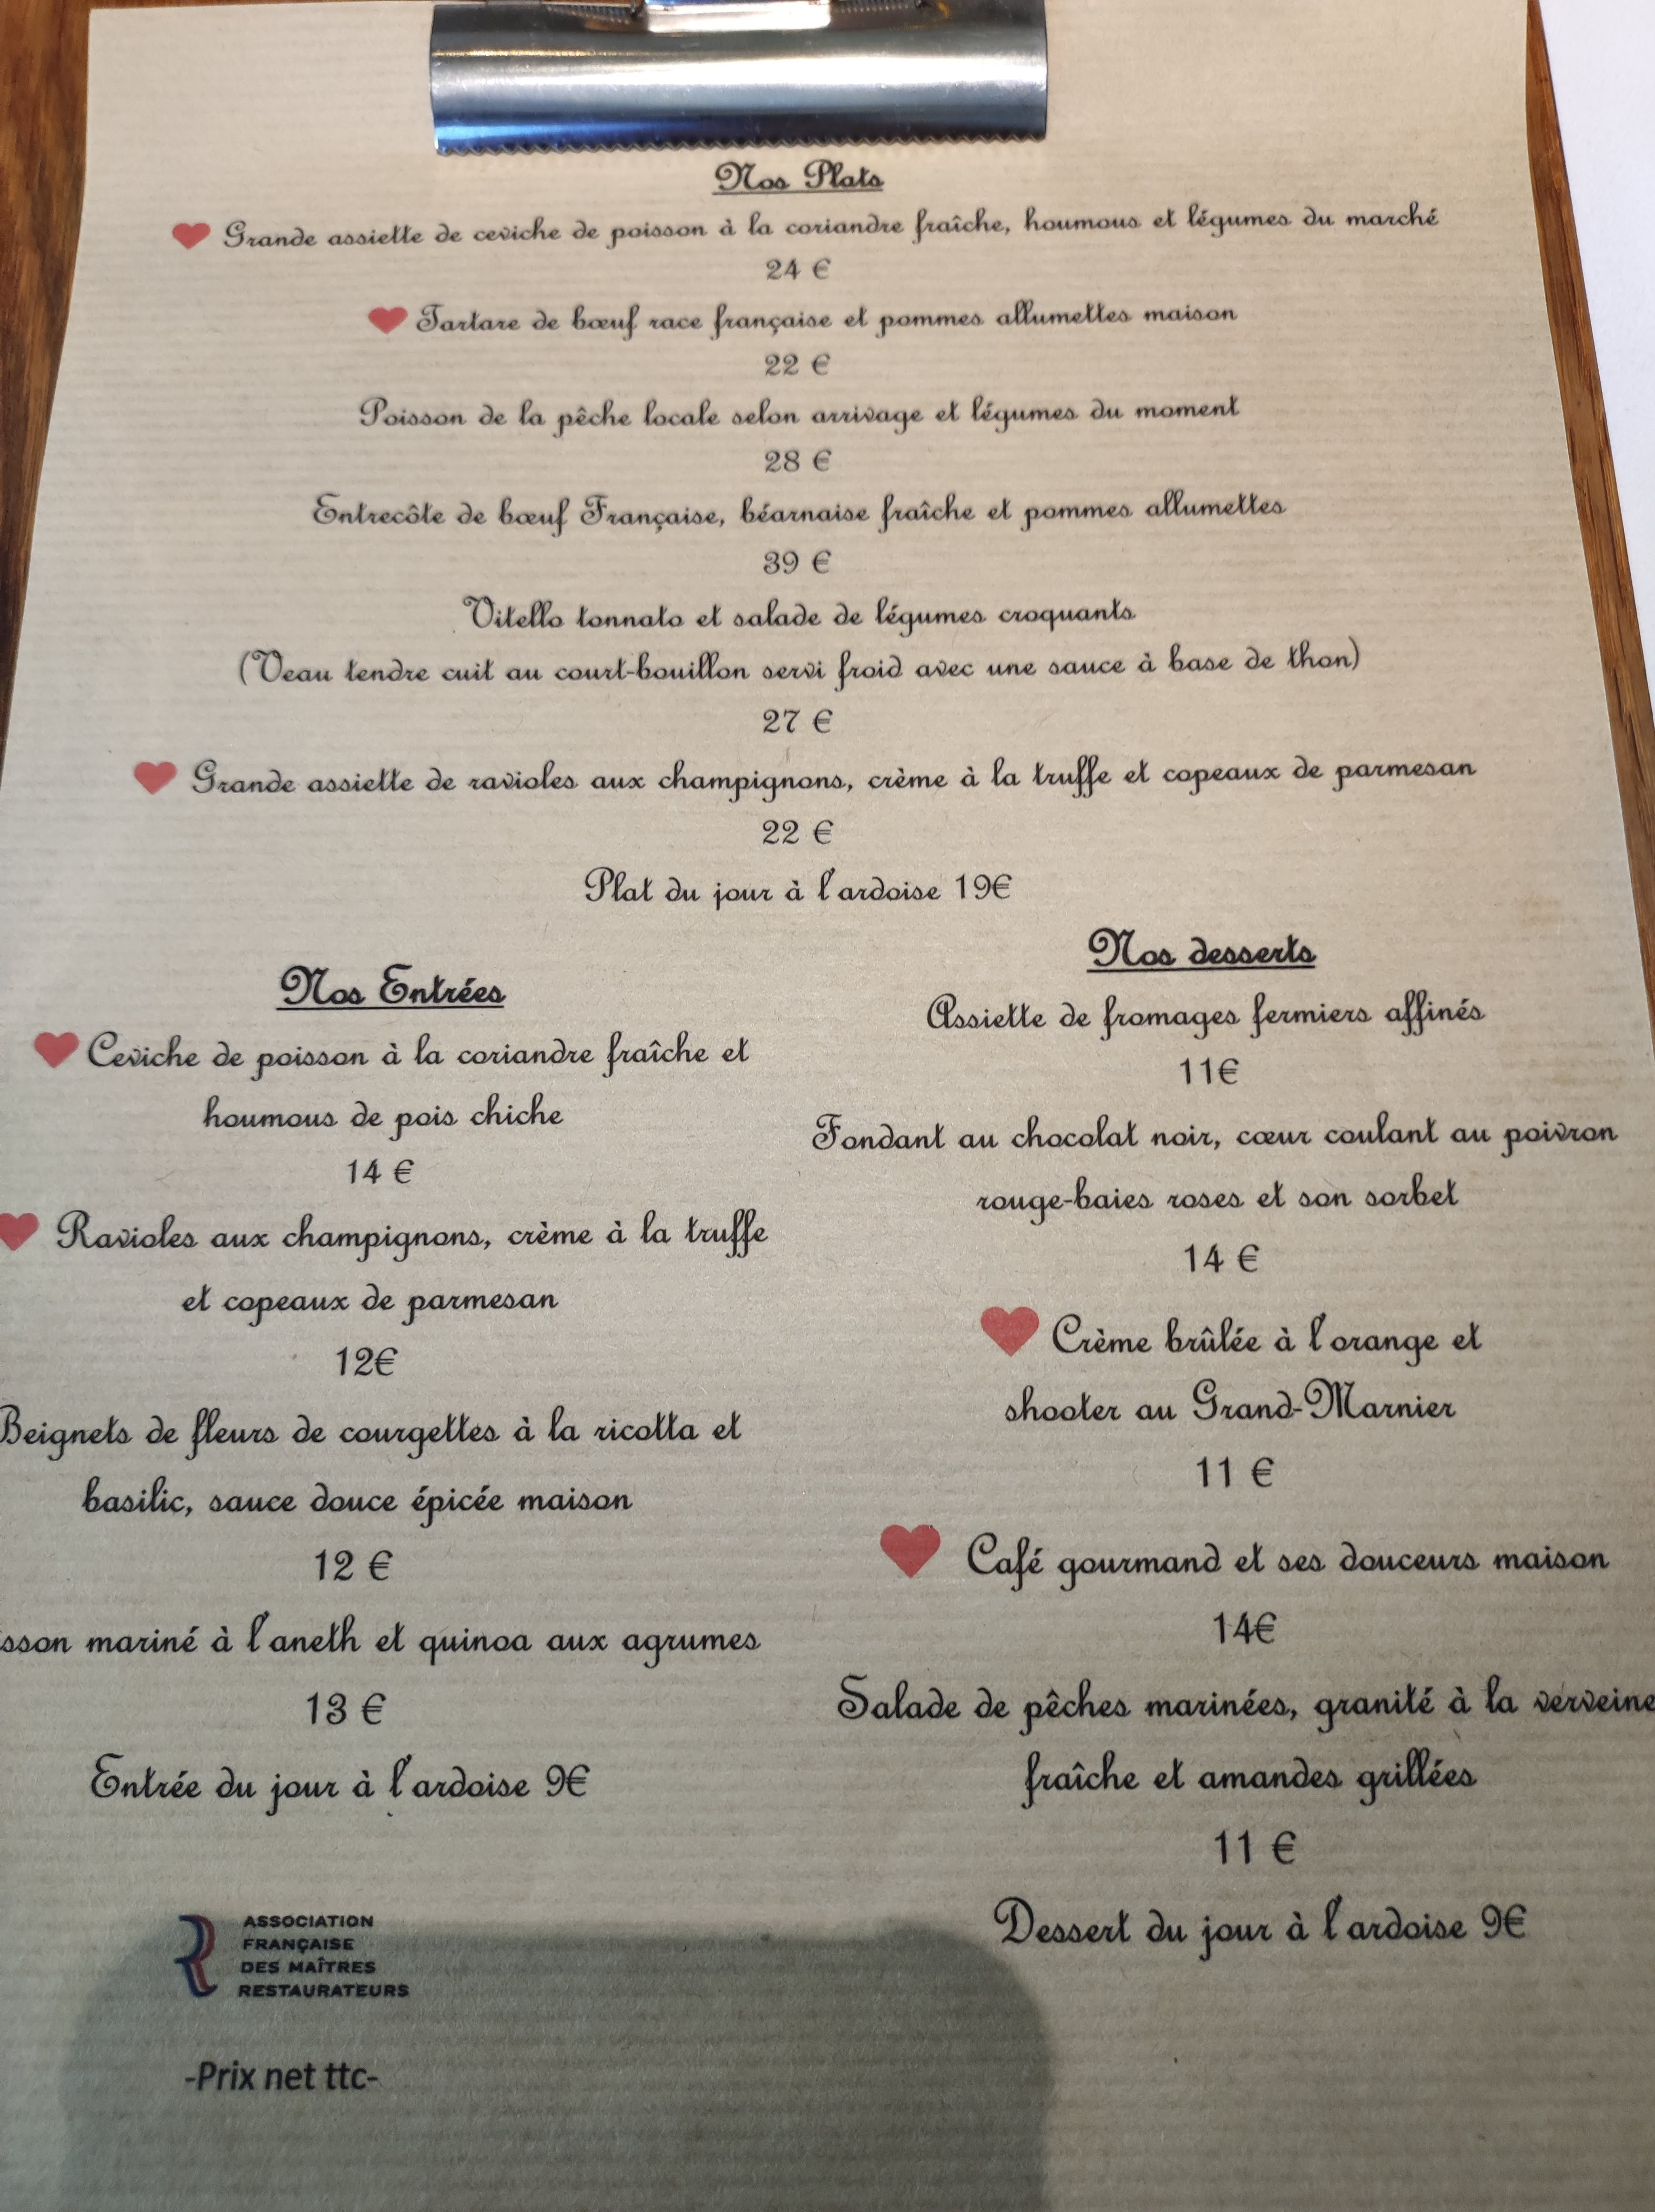 Nos Plats
Grande assiette de ceviche de poisson à la coriandre fraîche, houmous et légumes du marché
24 €
Tartare de bœuf race française et pommes allumettes maison
22 €
Poisson de la pêche locale selon arrivage et légumes du moment
28 €
Entrecôte de bœuf Française, béarnaise fraîche et pommes allumettes
39 €
Vitello tonnato et salade de légumes croquants
(Veau tendre cuit au court-bouillon servi froid avec une sauce à base de thon)
27 €
Grande assiette de ravioles aux champignons, crème à la truffe et copeaux de parmesan
22 €
Plat du jour à l'ardoise 19€
Nos Entrées
Ceviche de poisson à la coriandre fraîche et
houmous de pois chiche
14 €
Ravioles aux champignons, crème à la truffe
et copeaux de parmesan
12€
Beignets de fleurs de courgettes à la ricotta et
basilic, sauce douce épicée maison
12 €
mariné à l'aneth et quinoa aux agrumes
13 €
Entrée du jour à l'ardoise 9€
ASSOCIATION
FRANÇAISE
DES MAÎTRES
RESTAURATEURS
-Prix net ttc-
Nos desserts
Assiette de fromages fermiers affinés
11€
Fondant au chocolat noir, cœur coulant au poivron
rouge-baies roses et son sorbet
14 €
Crème brûlée à l'orange et
shooter au Grand-Marnier
11 €
Café gourmand et ses douceurs maison
14€
Salade de pêches marinées, granité à la verveine
fraîche et amandes grillées
11 €
Dessert du jour à l'ardoise 9€